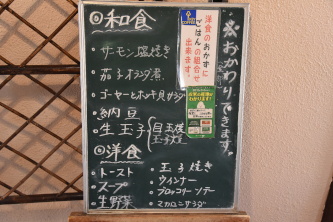 ◎和食
・サーモン塩焼き
・茄子オランダ煮
・ゴーヤーとホッキ貝サラダ
・納豆
・生玉子
目玉焼
玉子焼
◎洋食
・トースト
・スープ
・生野菜
・玉子焼き
・ウインナー
・ブロッコリーソテー
・マカロニサラダ
洋食のおかずに
ごはんの組合せ
出来ます。
おかわりできます。